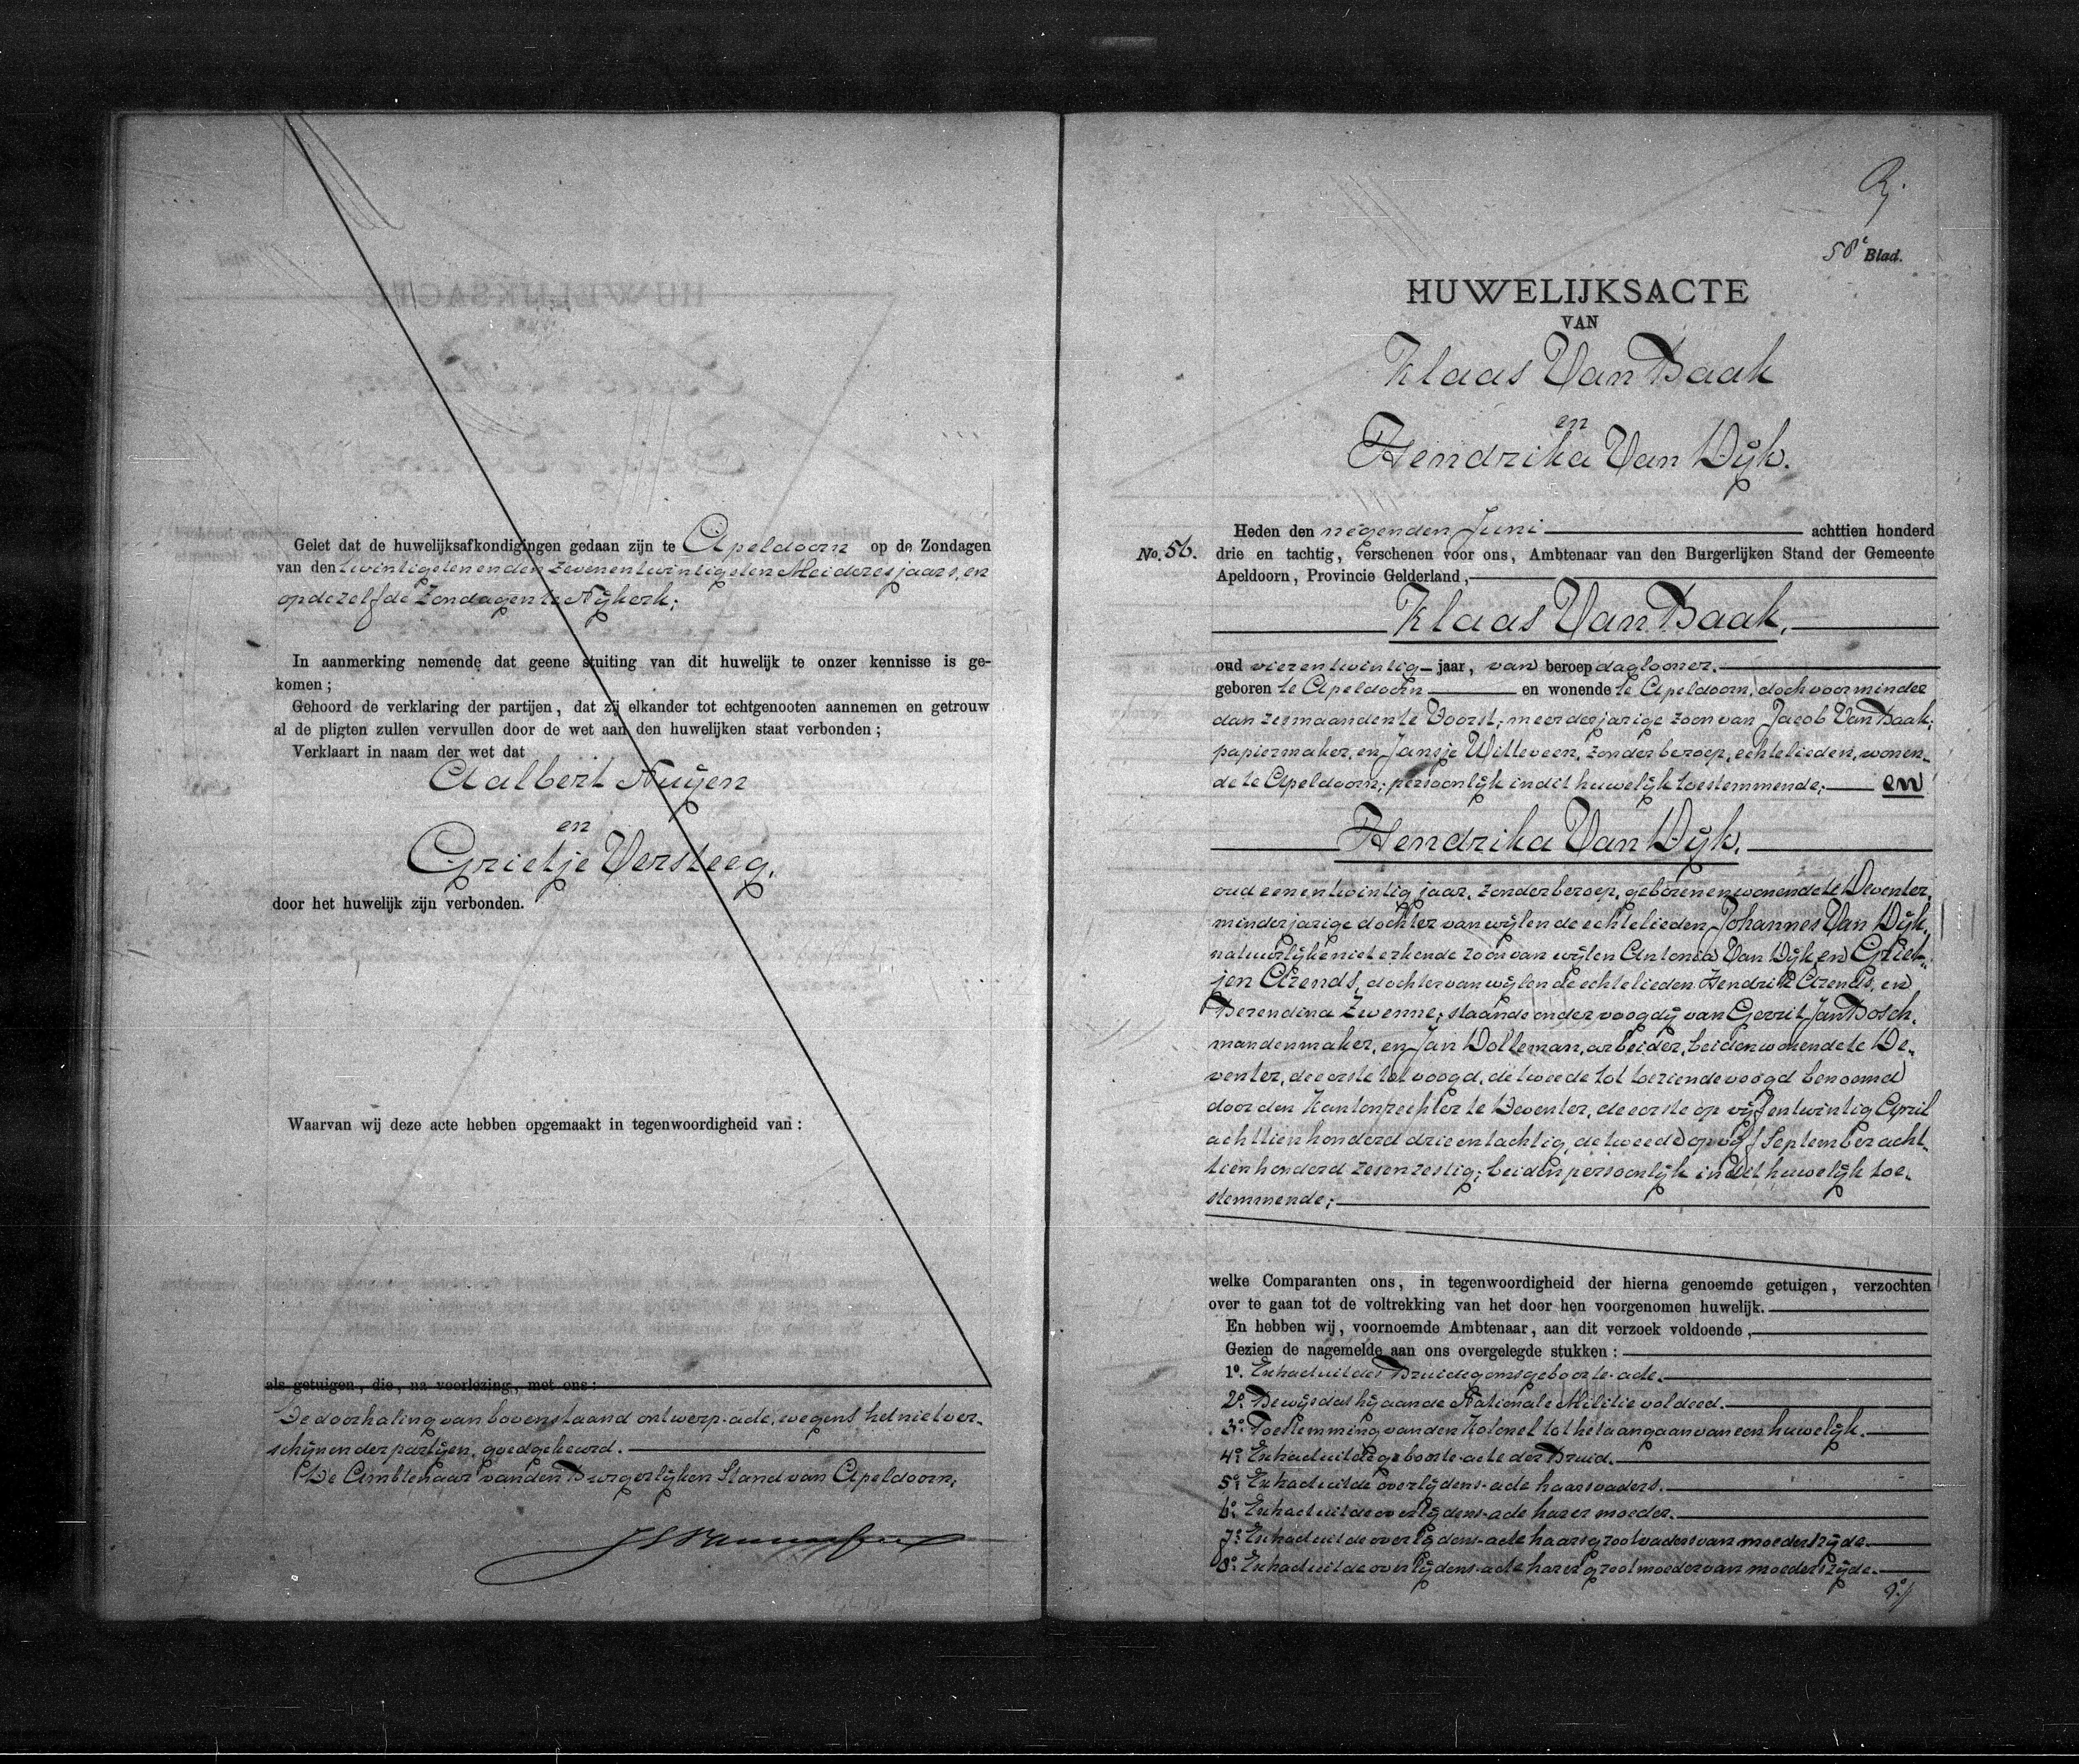 Gelet dat de huwelijksafkondigingen gedaan zijn te Apeldoorn op de Zondagen
van den twintigsten en den zevenentwintigsten Mei dezes jaars, en
op dezelfde Zondagen te Nijkerk;
In aanmerking nemende dat geene stuiting van dit huwelijk te onzer kennisse is ge-
komen;
Gehoord de verklaring der partijen, dat zij elkander tot echtgenooten aannemen en getrouw
al de pligten zullen vervullen door de wet aan den huwelijken staat verbonden;
Verklaart in naam der wet dat
Aalbert Nuijen
en
Grietje Versteeg,
door het huwelijk zijn verbonden.
Waarvan wij deze acte hebben opgemaakt in tegenwoordigheid van:
als getuigen, die, na voorlezing, met ons:
De doorhaling van bovenstaand ontwerp-acte, wegens het niet ver-
schijnen der partijen, goedgekeurd.
De Ambtenaar van den Burgerlijken Stand van Apeldoorn,
58e Blad.
HUWELIJKSACTE
VAN
Klaas Van Baak
en
Hendrika Van Dijk.
Heden den negenden Juni achttien honderd
No. 56. drie en tachtig, verschenen voor ons, Ambtenaar van den Burgerlijken Stand der Gemeente
Apeldoorn, Provincie Gelderland,
Klaas Van Baak,
oud vierentwintig jaar, van beroep daglooner,
geboren te Apeldoorn en wonende te Apeldoorn, doch voor minder
dan zes maanden te Voorst; meerderjarige zoon van Jacob Van Baak,
papiermaker, en Jansje Witteveen, zonder beroep, echtelieden, wonen-
de te Apeldoorn; persoonlijk in dit huwelijk toestemmende; en
Hendrika Van Dijk,
oud eenentwintig jaar, zonder beroep, geboren en wonende te Deventer,
minderjarige dochter van wijlen de echtelieden Johannes Van Dijk,
natuurlijke niet erkende zoon van wijlen Antonia Van Dijk, en Griet-
jen Arends, dochter van wijlen de echtelieden Hendrik Arends, en
Berendina Zwenne; staande onder voogdij van Gerrit Jan Bosch,
mandenmaker, en Jan Dolleman, arbeider, beiden wonende te De-
venter, de eerste tot voogd, de tweede tot toeziende voogd benoemd
door den Kantonrechter te Deventer, de eerste op vijfentwintig April
achttienhonderd drieentachtig, de tweede op vijf September acht-
tienhonderd zesenzestig; beiden persoonlijk in dit huwelijk toe-
stemmende;
welke Comparanten ons, in tegenwoordigheid der hierna genoemde getuigen, verzochten
over te gaan tot de voltrekking van het door hen voorgenomen huwelijk.
En hebben wij, voornoemde Ambtenaar, aan dit verzoek voldoende,
Gezien de nagemelde aan ons overgelegde stukken:
1o. Extract uit des Bruidegoms geboorte-acte.
2o. Bewijs dat hij aan de Nationale Militie voldeed.
3o. Toestemming van den Kolonel tot het aangaan van een huwelijk.
4o. Extract uit de geboorte-acte der Bruid.
5o. Extract uit de overlijdens-acte haars vaders.
6o. Extract uit de overlijdens-acte harer moeder.
7o. Extract uit de overlijdens-acte haars grootvaders van moederszijde.
8o. Extract uit de overlijdens-acte harer grootmoeder van moederszijde.
9o.